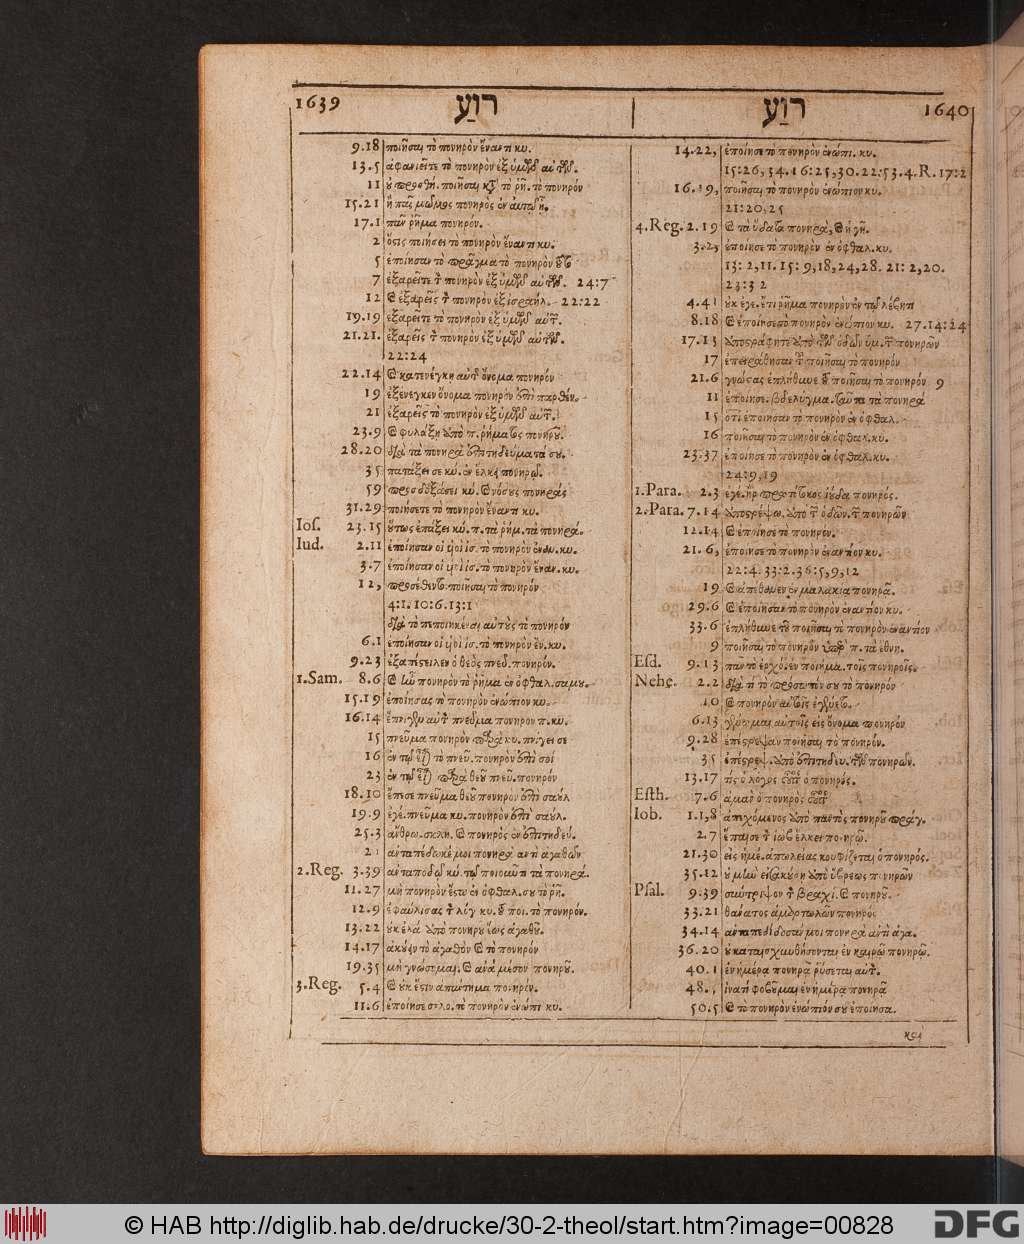 1639 רוַּע
9.18 ποιῆσαι τὸ πονηρὸν ἔναντι κυ.
13.5 ἀφανιεῖτε τὸ πονηρὸν ἐξ ὑμῶν αὐτῶν.
11 ποιῆσαι τὸ ῥῆ. τὸ πονηρόν
15.21 ἢ πᾶς μῶμος πονηρὸς ἐν αὐτῷ ᾖ.
17.1 πᾶν ῥῆμα πονηρόν.
2 ὅστις ποιήσει τὸ πονηρὸν ἔναντι κυ.
5 ἐποίησαν τὸ πρᾶγμα τὸ πονηρὸν
7 ἐξαρεῖτε τ̀ πονηρὸν ἐξ ὑμῶν αὐτῶν. 24:7
12 ἐξαρεῖς τ̀ πονηρὸν ἐξ ἰσραήλ. 22:22
19.19 ἐξαρεῖτε τὸ πονηρὸν ἐξ ὑμῶν αὐτ̃.
21.21. ἐξαρεῖς τ̀ πονηρὸν ἐξ ὑμῶν αὐτῶν.
22:24
22.14 κατενέγκῃ αὐτ̃ ὄνομα πονηρόν
19 ἐξένεγκεν ὄνομα πονηρὸν ἐπὶ παρθέν.
21 ἐξαρεῖς τὸ πονηρὸν ἐξ ὑμῶν αὐτ̃.
23.9 φυλάξῃ ἀπὸ π. ῥήματος πονηροῦ.
28.20 διὰ τὰ πονηρὰ ἐπιτηδεύματά σου.
35 πατάξει σε κύ. ἐν ἕλκει πονηρῷ.
59 νόσους πονηράς
31.29 ποιήσετε τὸ πονηρὸν ἔναντι κυ.
Ios. 23.15 οὕτως ἐπάξει κύ. π. τὰ ῥήμ. τὰ πονηρά.
Iud. 2.11 ἐποίησαν οἱ υἱοὶ ἰσ. τὸ πονηρὸν ἐνών. κυ.
3.7 ἐποίησαν οἱ υἱοὶ ἰσ. τὸ πονηρὸν ἔναν. κυ.
12, προσέθεντο ποιῆσαι τὸ πονηρόν
4:1. 10:6. 13:1
διὰ τὸ πεποιηκέναι αὐτοὺς τὸ πονηρόν
6.1 ἐποίησαν οἱ υἱοὶ ἰσ. τὸ πονηρὸν ἐν. κυ.
9.23 ἐξαπέστειλεν ὁ θεὸς πνεῦ. πονηρόν.
1.Sam. 8.6 ἦν πονηρὸν τὸ ῥῆμα ἐν ὀφθαλ. σαμου.
15.19 ἐποίησας τὸ πονηρὸν ἐνώπιον κυ.
16.14 ἔπνιγεν αὐτ̀ πνεῦμα πονηρὸν π. κυ.
15 πνεῦμα πονηρὸν παρὰ κυ. πνίγει σε
16 ἐν τῷ εἶναι τὸ πνεῦ. πονηρὸν ἐπὶ σοί
23 ἐν τῷ εἶναι παρὰ θεοῦ πνεῦ. πονηρόν
18.10 ἔπεσε πνεῦμα θεοῦ πονηρὸν ἐπὶ σαούλ
19.9 ἐγέ. πνεῦμα κυ. πονηρὸν ἐπὶ σαούλ.
25.3 ἄνθρω. σκλη. πονηρὸς ἐν ἐπιτηδεύ.
21 ἀνταπέδωκέ μοι πονηρὰ ἀντὶ ἀγαθῶν
2.Reg. 3.39 ἀνταποδῷ κύ. τῷ ποιοῦντι τὰ πονηρά.
11.27 μὴ πονηρὸν ἔστω ἐν ὀφθαλ. σου τὸ ῥῆ.
12.9 ἐφαύλισας τ̀ λόγ κυ. ποι. τὸ πονηρόν.
13.22 οὐκ ἐλά ἀπὸ πονηροῦ ἕως ἀγαθοῦ.
14.17 ἀκούειν τὸ ἀγαθὸν τὸ πονηρόν
19.35 μὴ γνώσομαι. ἀνὰ μέσον πονηροῦ.
3.Reg. 5.4 οὐκ ἔστιν ἀπάντημα πονηρόν.
11.6 ἐποίησε σαλο. τὸ πονηρὸν ἐνώπι κυ.
רוַּע 1640
14.22, ἐποίησε τὸ πονηρὸν ἐνώπι. κυ.
15:26, 34. 16:25, 30. 22:53. 4.R. 17:2
16.19, ποιῆσαι τὸ πονηρὸν ἐνώπιον κυ.
21:20, 25
4.Reg. 2.19 τὰ ὕδατα πονηρά, ἡ γῆ.
3.2, ἐποίησε τὸ πονηρὸν ἐν ὀφθαλ. κυ.
13:2, 11. 15:9, 18, 24, 28. 21:2, 20.
23:32
4.41 οὐκ ἐγε. ἔτι ῥῆμα πονηρὸν ἐν τῷ λέβητι
8.18 ἐποίησε τὸ πονηρὸν ἐνώπιον κυ. 27.14:24
17.13 ἀποστράφητε ἀπὸ τῶν ὁδῶν ὑμ. τ̃ πονηρῶν
17 ἐπειράθησαν τ̃ ποιῆσαι τὸ πονηρόν
21.6 γνώστας ἐπλήθυνε ποιῆσαι τὸ πονηρόν 9
11 ἐποίησε. βδελύγμα. ταῦτα τὰ πονηρά
15 ὅτι ἐποίησαν τὸ πονηρὸν ἐν ὀφθαλ.
16 ποιῆσαι τὸ πονηρὸν ἐν ὀφθαλ. κυ.
23.37 ἐποίησε τὸ πονηρὸν ἐν ὀφθαλ. κυ.
24:9, 19
1.Para. 2.3 ἐγέ. ἢρ πρωτότοκος ἰούδα πονηρός.
2.Para. 7.14 ἀποστρέψω. ἀπὸ τ̃ ὁδῶν. τ̃ πονηρῶν
12.14 ἐποίησε τὸ πονηρόν.
21.6, ἐποίησε τὸ πονηρὸν ἐναντίον κυ.
22:4. 33:2. 36:5, 9, 12
19 ἀπέθανεν ἐν μαλακίᾳ πονηρᾷ.
29.6 ἐποίησαν τὸ πονηρὸν ἐναντίον κυ.
33.6 ἐπλήθυνε τοῦ ποιῆσαι τὸ πονηρὸν ἐναντίον
9 ποιῆσαι τὸ πονηρὸν ὑπὲρ π. τὰ ἔθνη.
Esd. 9.13 πᾶν τὸ ἐρχό. ἐν ποιήμα. τοῖς πονηροῖς.
Nehe. 2.2 διὰ τί τὸ πρόσωπόν σου τὸ πονηρόν
10 πονηρὸν αὐτοῖς ἐγένετο.
6.13 γένωμαι αὐτοῖς εἰς ὄνομα πονηρόν
9.28 ἐπέστρεψαν ποιῆσαι τὸ πονηρόν.
35 ἐπέστρεψ. ἀπὸ ἐπιτηδευ. τῶν πονηρῶν.
13.17 τίς ὁ λόγος οὗτος ὁ πονηρός.
Esth. 7.6 ἀμαὰν ὁ πονηρὸς οὗτος
Iob. 1.1, 8 ἀπεχόμενος ἀπὸ παντὸς πονηροῦ πράγ.
2.7 ἔπαισε τ̀ ἰὼβ ἕλκει πονηρῷ.
21.30 εἰς ἡμέ. ἀπωλείας κουφίζεται ὁ πονηρός.
35.12 οὐ μὴ εἰσακούσῃ ἀπὸ ὕβρεως πονηρῶν
Psal. 9.39 σύντριψον τ̀ βραχί. πονηροῦ.
33.21 θάνατος ἁμαρτωλῶν πονηρός
34.14 ἀνταπεδίδοσάν μοι πονηρὰ ἀντὶ ἀγα.
36.20 οὐ καταισχυνθήσονται ἐν καιρῷ πονηρῷ.
40.1 ἐν ἡμέρᾳ πονηρᾷ ῥύσεται αὐτ̀.
48.5 ἱνατί φοβοῦμαι ἐν ἡμέρᾳ πονηρᾷ
50.5 τὸ πονηρὸν ἐνώπιόν σου ἐποίησα.
© HAB http://diglib.hab.de/drucke/30-2-theol/start.htm?image=00828
DFG